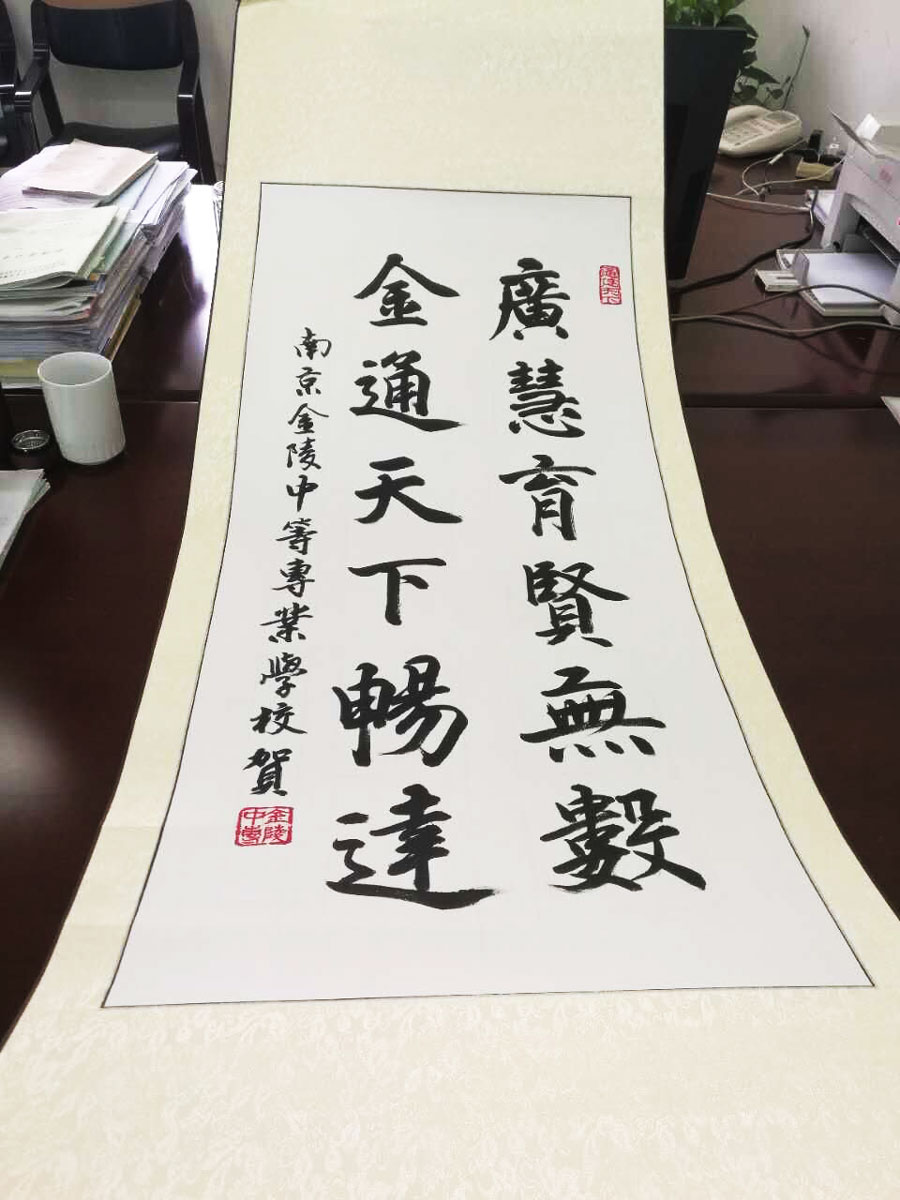 廣慧育賢無數
金通天下暢達
南京金陵中等專業學校賀
金陵
中專